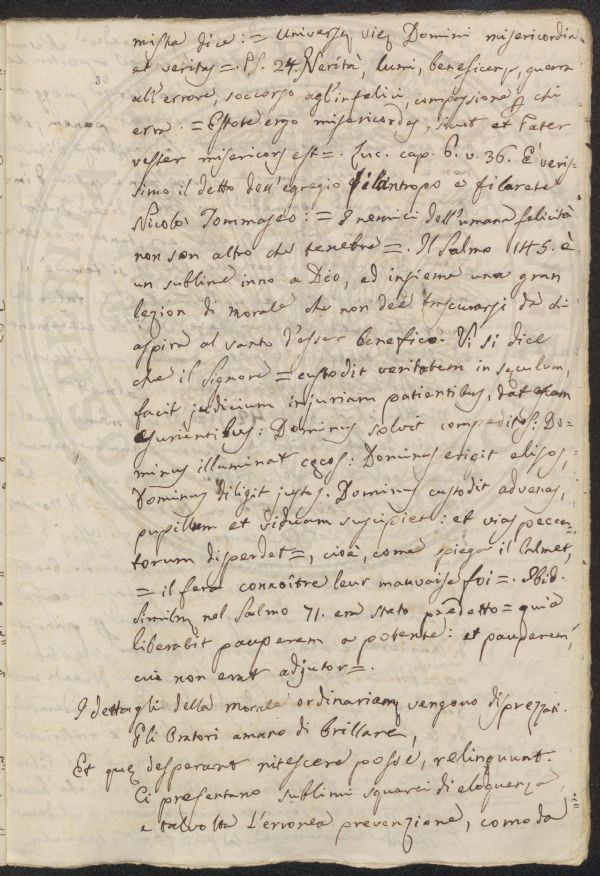 mista dice := Universę vię Domini misericordia
et veritas =. Ps. 24. Verità, lumi, beneficenza, guerra
30
all'errore, soccorso agl'infelici, compassione p chi
erra. = Estote ergo misericordes, sicut et Pater
vester misericors est =. Luc. cap. 6. v. 36. E' veris-
simo il detto dell'egregio filantropo e filarete
Nicolò Tommaseo: = I nemici dell'umana felicità
non son altro che tenebre =. Il Salmo 145. è
un sublime inno a Dio, ed insieme una gran
lezion di morale che non dee trascurarsi da chi
aspira al vanto d'esser benefico. Vi si dice
che il Signore = custodit veritatem in sęculum,
facit judicium injuriam patientibus, dat escam
esurientibus: Dominus solvit compeditos: Do-
minus illuminat cęcos: Dominus erigit elisos,
Dominus diligit justos. Dominus custodit advenas,
pupillum et viduam suscipiet: et vias pecca-
torum disperdet =, cioè, come spiega il Calmet,
= il fera connoître leur mauvaise foi =. Ibid.
Similm nel Salmo 71. era stato predetto = quia
liberabit pauperem a potente: et pauperem,
cui non erat adjutor =.
I dettagli della morale ordinariam vengono disprezzati.
Gli Oratori amano di brillare,
Et quę desperant nitescere posse, relinquunt.
Ci presentano sublimi squarci di eloquenza,
e talvolta l'erronea prevenzione, comoda